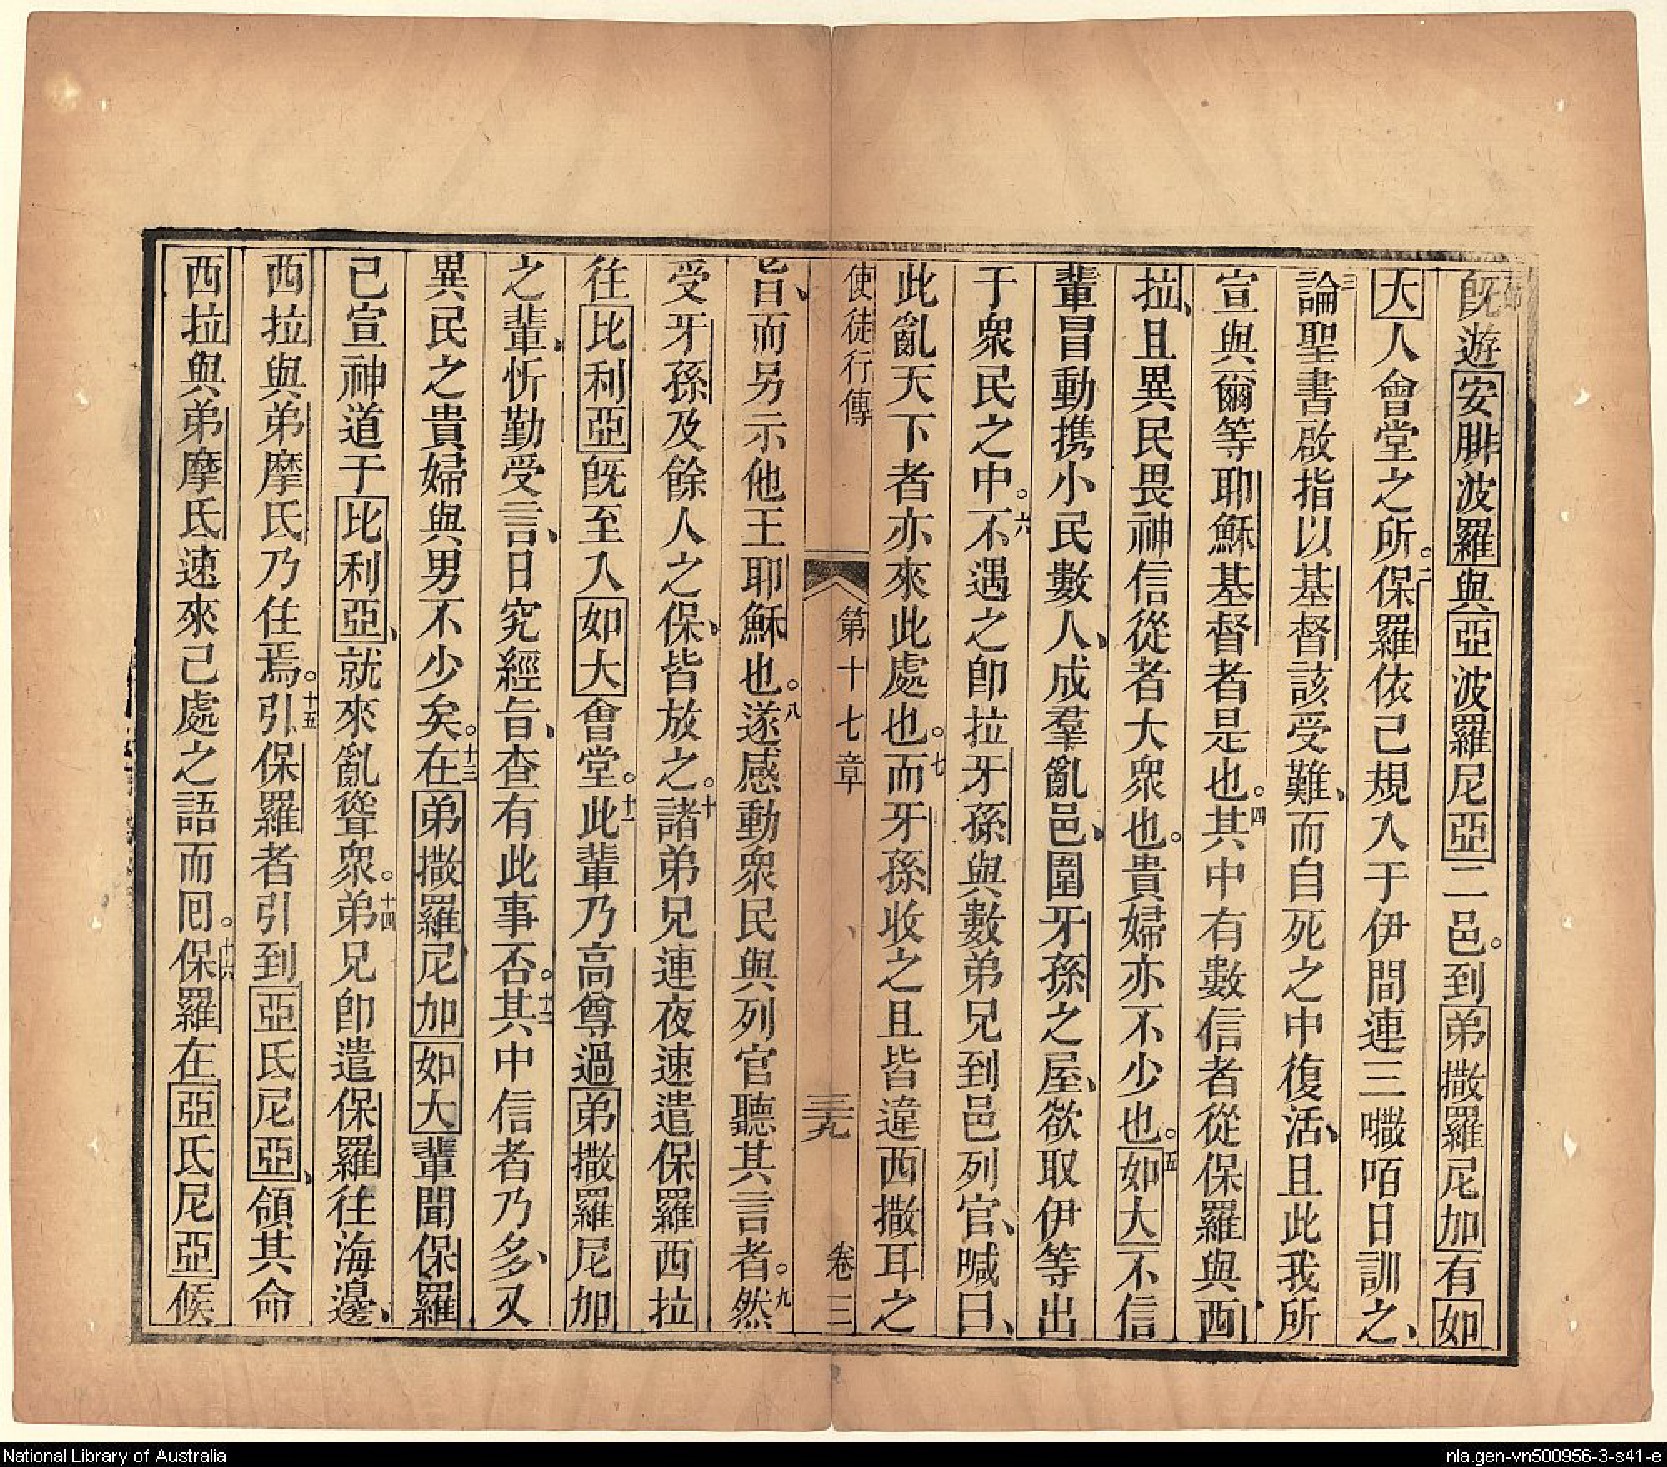 既遊安腓波羅與亞波羅尼亞二邑。到弟撒羅尼加有如
大人會堂之所。二保羅依己規入于伊間連三𡂠咟日訓之、
三論聖書啟指以基督該受難、而自死之中復活、且此我所
宣與爾等耶穌基督者是也。四其中有數信者從保羅與西
拉、且異民畏神信從者大衆也。貴婦亦不少也。五如大不信
輩冒動携小民數人、成羣亂邑、圍牙孫之屋、欲取伊等出
于衆民之中。六不遇之卽拉牙孫與數弟兄到邑列官、喊曰、
此亂天下者亦來此處也。七而牙孫收之且皆違西撒耳之
使徒行傳 第十七章 三十九 卷三
旨、而另示他王耶穌也。八遂感動衆民與列官聽其言者。九然
受牙孫及餘人之保、皆放之。十諸弟兄連夜速遣保羅西拉
往比利亞既至入如大會堂。十一此輩乃高尊過弟撒羅尼加
之輩、忻勤受言、日究經旨、查有此事否。十二其中信者乃多、又
異民之貴婦與男不少矣。十三在弟撒羅尼加如大輩聞保羅
已宣神道于比利亞、就來亂聳衆。十四弟兄卽遣保羅往海邊、
西拉與弟摩氐乃住焉。十五引保羅者引到亞氐尼亞、領其命
西拉與弟摩氐速來己處之語而囘。十六保羅在亞氐尼亞候